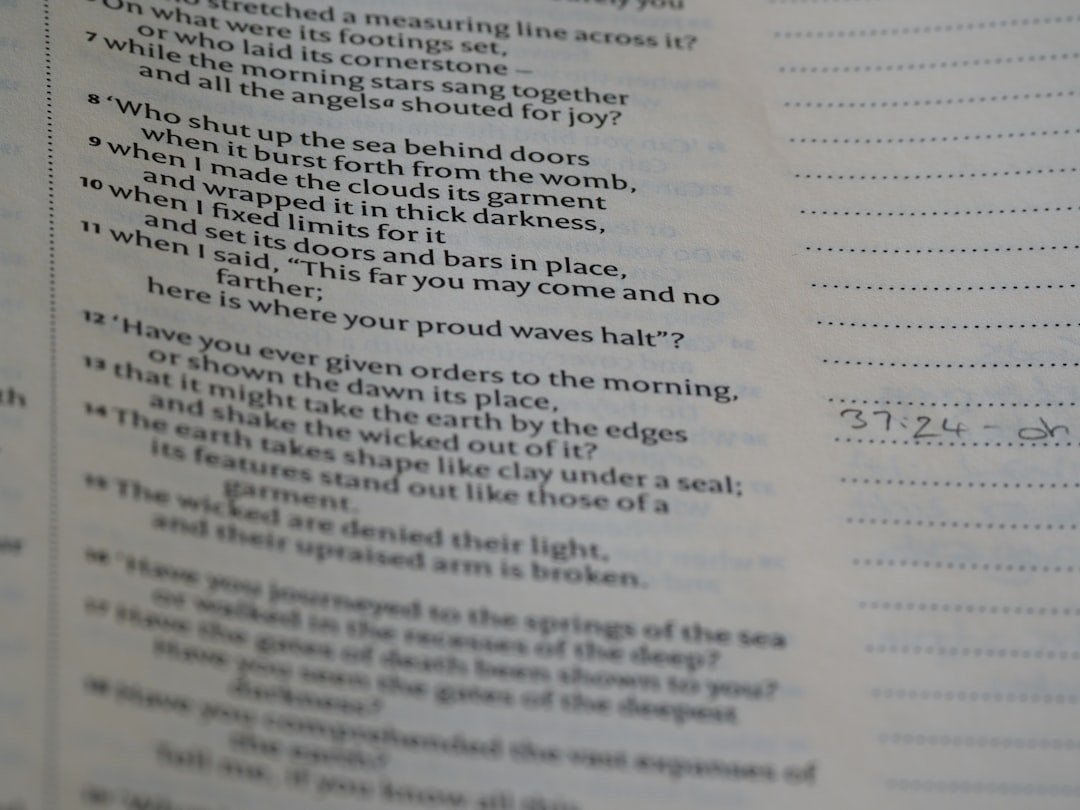 stretched a measuring line across it?
On what were its footings set,
or who laid its cornerstone –
7 while the morning stars sang together
and all the angelsa shouted for joy?
8 ‘Who shut up the sea behind doors
when it burst forth from the womb,
9 when I made the clouds its garment
and wrapped it in thick darkness,
10 when I fixed limits for it
and set its doors and bars in place,
11 when I said, “This far you may come and no
farther;
here is where your proud waves halt”?
12 ‘Have you ever given orders to the morning,
or shown the dawn its place,
13 that it might take the earth by the edges
and shake the wicked out of it?
14 The earth takes shape like clay under a seal;
its features stand out like those of a
garment.
15 The wicked are denied their light,
and their upraised arm is broken.
16 ‘Have you journeyed to the springs of the sea
or walked in the recesses of the deep?
17 Have the gates of death been shown to you?
Have you seen the gates of the deepest
darkness?
18 Have you comprehended the vast expanses of
the earth?
Tell me, if you know all this.
37:24 - oh